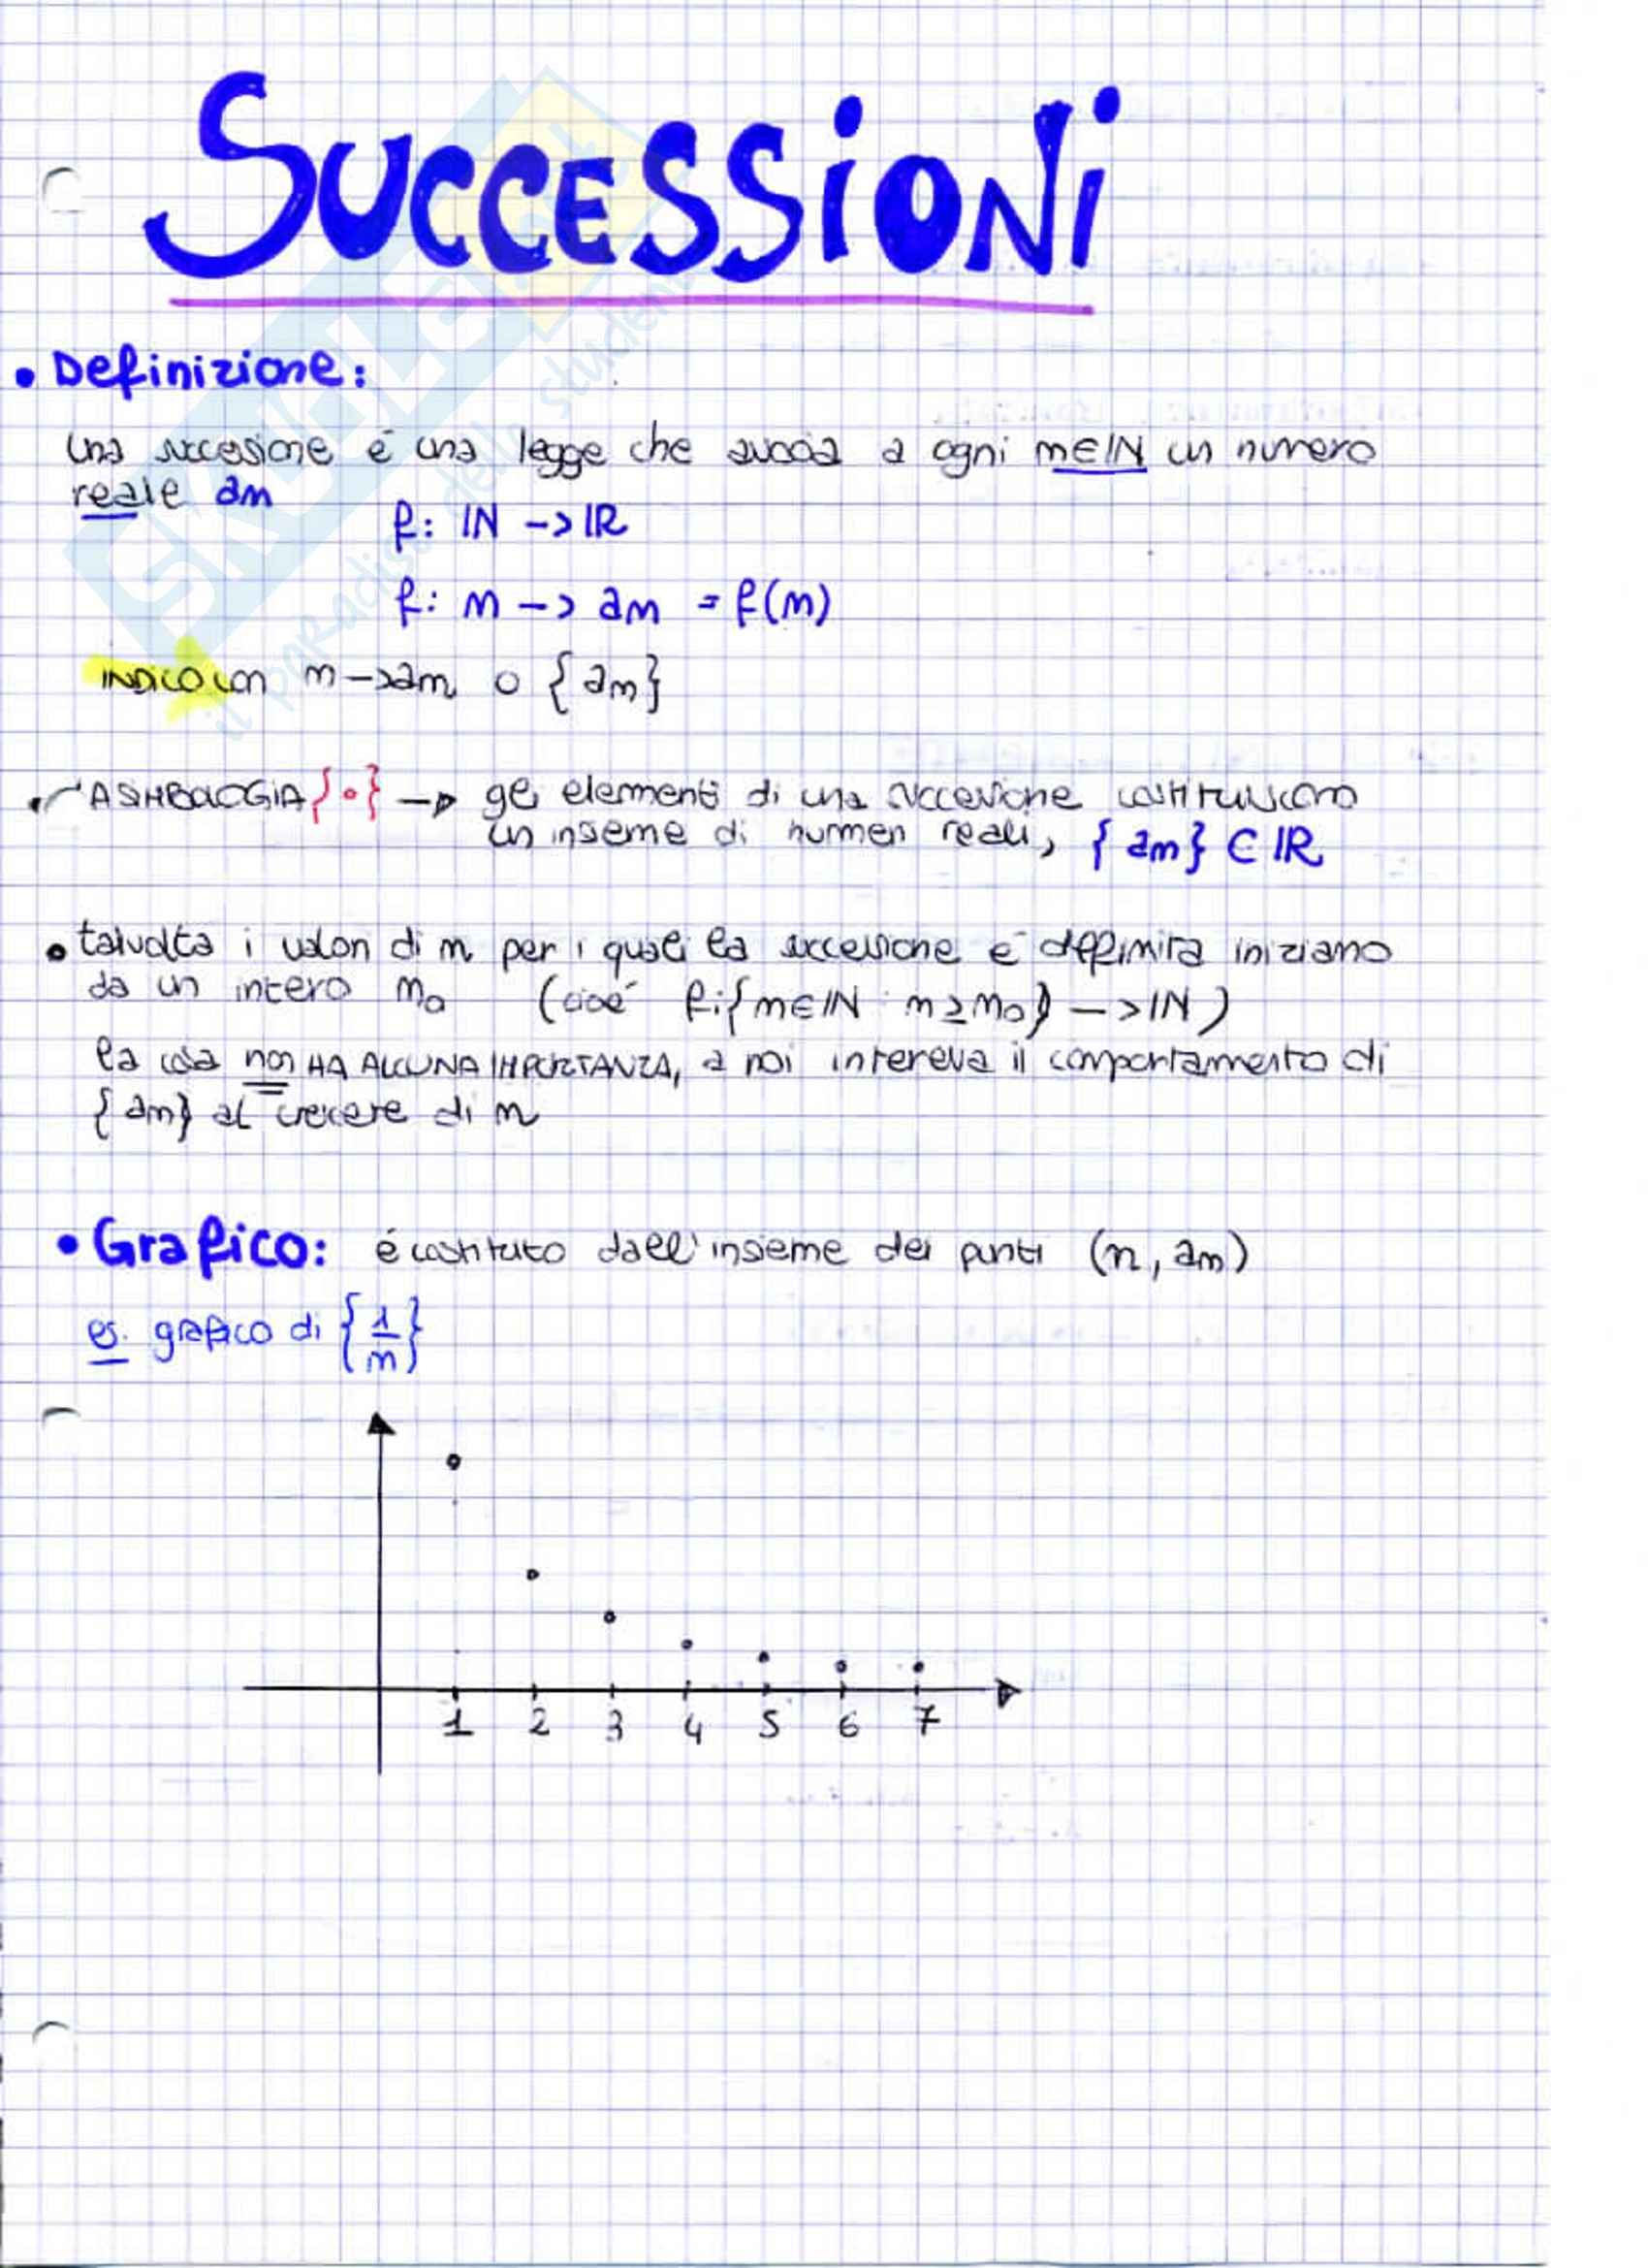 SUCCESSIONI
• Definizione:
Una successione é una legge che associa a ogni n∈IN un numero
reale an
f: IN -> IR
f: n -> an = f(n)
INDICO con n->an o {an}
• SIMBOLOGIA {•} -> gli elementi di una successione costituiscono
un insieme di numeri reali, {an} ⊂ IR
• talvolta i valori di n per i quali la successione é definita iniziano
da un intero n0 (cioé f:{n∈IN : n≥n0} -> IN)
la cosa non HA ALCUNA IMPORTANZA, a noi interessa il comportamento di
{an} al crescere di n
• Grafico: é costituito dall'insieme dei punti (n, an)
es. grafico di {1/n}
1 2 3 4 5 6 7
SKUOLA.net
il paradiso dello studente